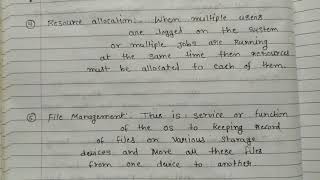 ④ Resource allocation:- When multiple users
are logged on the system
or multiple jobs are running
at the same time then resources
must be allocated to each of them.
⑤ File Management:- Thus is service or function
of the os to keeping record
of files on various storage
devices and move all these files
from one device to another.